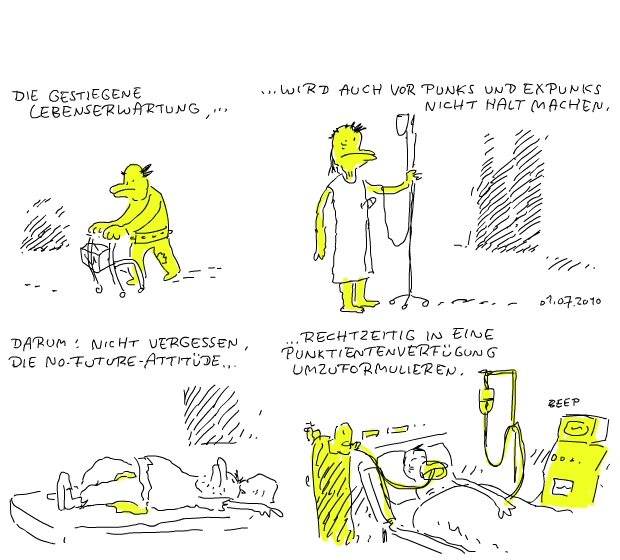 DIE GESTIEGENE
LEBENSERWARTUNG,...
...WIRD AUCH VOR PUNKS UND EXPUNKS
NICHT HALT MACHEN.
01.07.2010
DARUM: NICHT VERGESSEN,
DIE NO-FUTURE-ATTITÜDE...
...RECHTZEITIG IN EINE
PUNKTIENTENVERFÜGUNG
UMZUFORMULIEREN.
BEEP